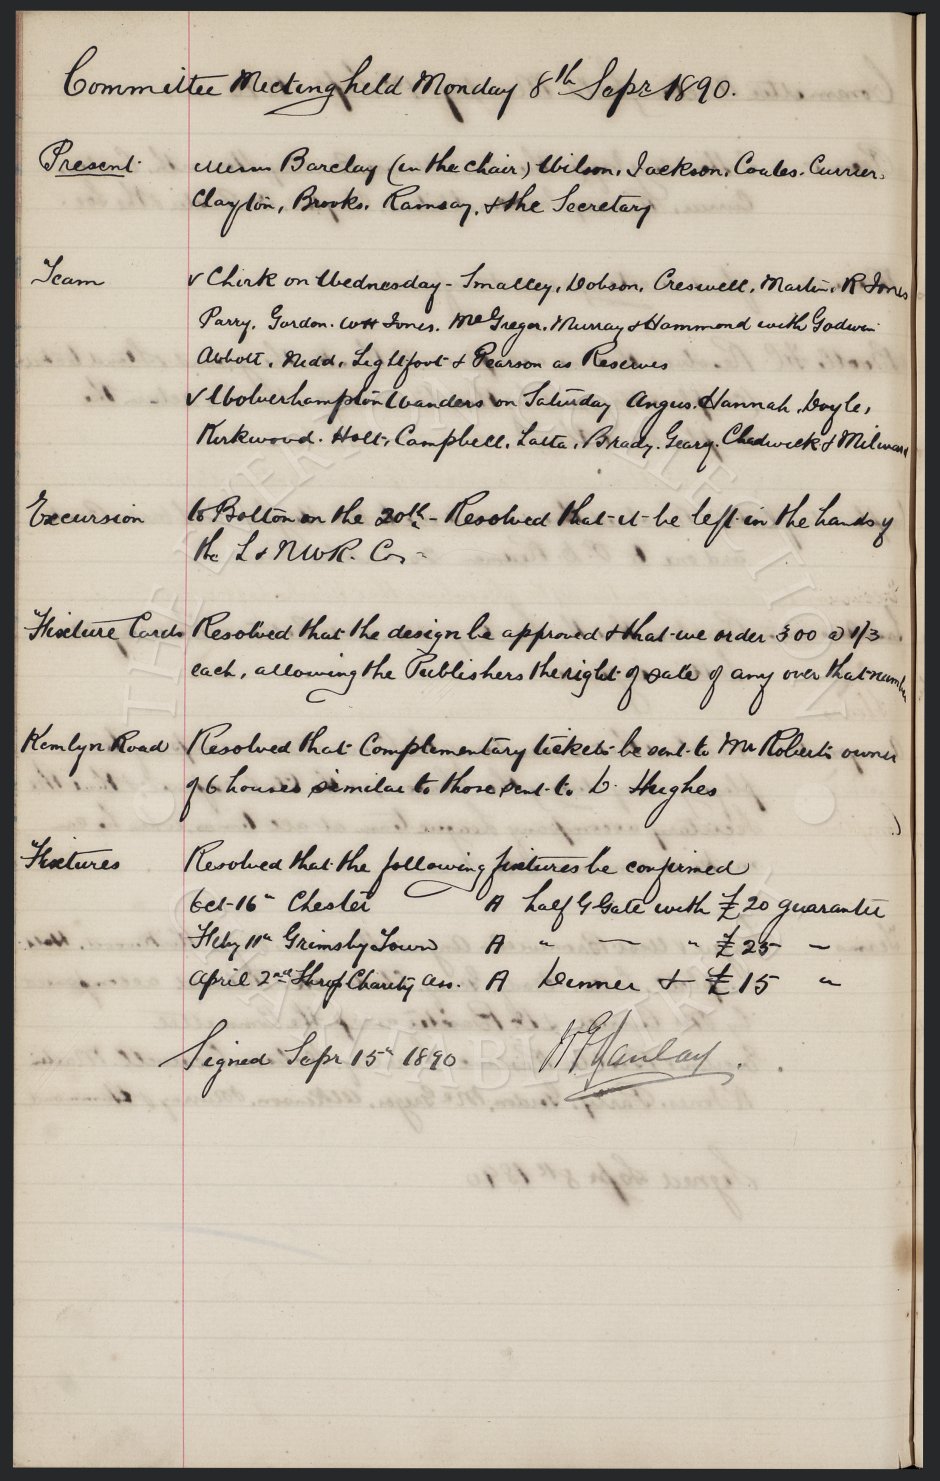 Committee Meeting held Monday 8th Sepr 1890.
Present Messrs Barclay (in the chair) Wilson, Jackson, Coates, Currier,
Clayton, Brooks, Ramsay, & the Secretary
Team v Chirk on Wednesday - Smalley, Dobson, Creswell, Martin, R Jones
Parry, Gordon. WH Jones. McGregor, Murray & Hammond with Godwin
Abbott, Nidd, Lightfoot & Pearson as Reserves
v Wolverhampton Wanders on Saturday Angus, Hannah, Doyle,
Kirkwood. Holt, Campbell, Latta, Brady, Geary, Chadwick & Milward
Excursion to Bolton on the 20th - Resolved that it be left in the hands of
the L & NWR. Co
Fixture Cards Resolved that the design be approved & that we order 300 @ 1/3
each, allowing the Publishers the right of sale of any over that number
Kemlyn Road Resolved that Complementary tickets be sent to Mr Roberts owner
of 6 houses similar to those sent to D. Hughes
Fixtures Resolved that the following fixtures be confirmed
Oct 16th Chester A half G Gate with £20 guarantee
Feby 11th Grimsby Town A " — " £25 "
April 2nd Shrop Charity Ass. A Dinner & £15 "
Signed Sepr 15th 1890 Barclay.
THE EVERTON COLLECTION
CHARITABLE TRUST